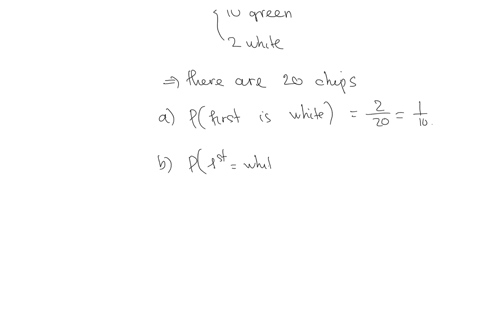 10 green
2 white
⇒ there are 20 chips
a) P(first is white) = 2/20 = 1/10
b) P(1st = whi